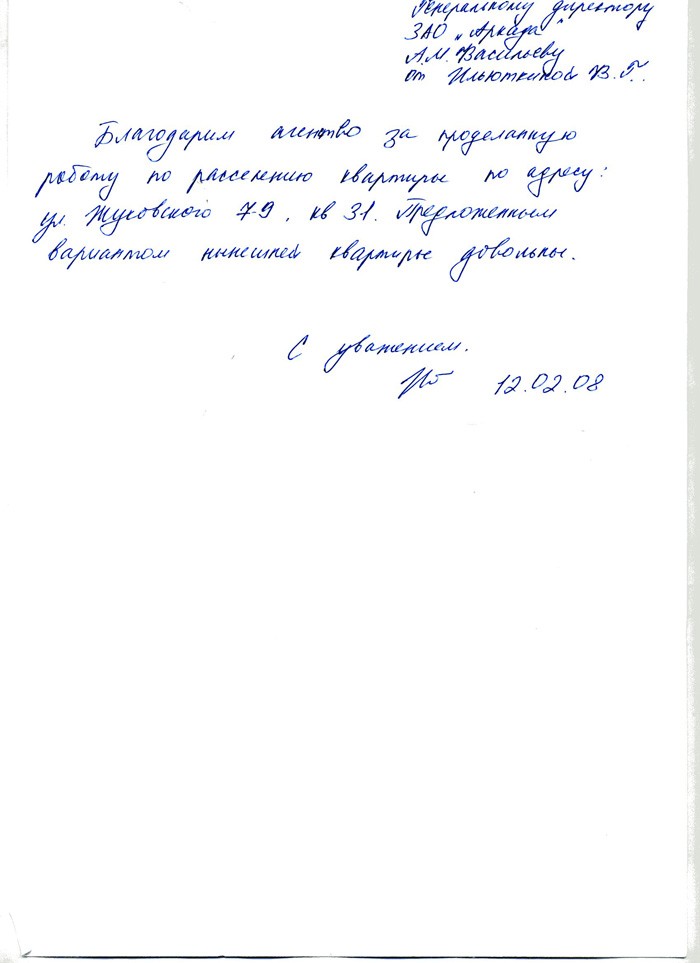 Генеральному директору
ЗАО „Аркада"
А.М. Васильеву
от Ильюткиной В.Г.
Благодарим агенство за проделанную
работу по расселению квартиры по адресу:
ул. Жуковского 7-9, кв 31. Предложенным
вариантом нынешней квартиры довольны.
С уважением.
12.02.08